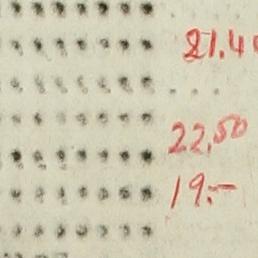 21.40
22,50
19.-